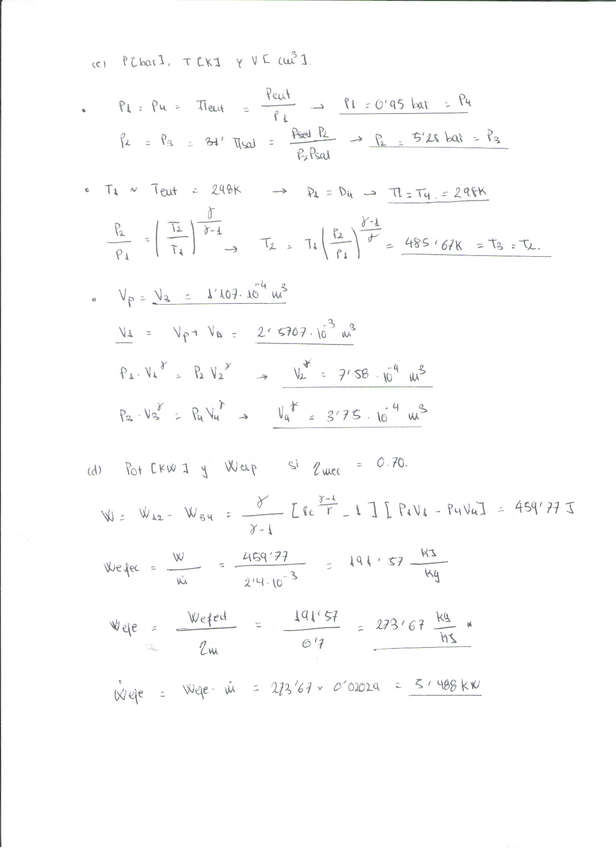 (c) P[bar], T[K] y V[cm³].
• P1 = P4 = Πent = Pent / P1 → P1 = 0'95 bar = P4
P2 = P3 = Πsal = P2 / Psal → P2 = 5'25 bar = P3
• T1 ~ Tent = 298K → D1 = D4 → T1 = T4 = 298K
P2 / P1 = (T2 / T1)^(γ / γ-1) → T2 = T1 (P2 / P1)^(γ-1 / γ) = 485'67K = T3 = T2.
• Vp = V3 = 1'107·10⁻⁴ m³
V1 = Vp + VD = 2'5707·10⁻³ m³
P1·V1^γ = P2 V2^γ → V2* = 7'58·10⁻⁴ m³
P3·V3^γ = P4 V4^γ → V4* = 3'75·10⁻⁴ m³
(d) Pot [KW] y Wesp si ηmec = 0.70.
W = W12 - W34 = γ / γ-1 [rc^(γ-1 / γ) - 1] [P1V1 - P4V4] = 459'77 J
Wefec = W / m = 459'77 / 2'4·10⁻³ = 191'57 KJ / Kg
Weje = Wefect / ηm = 191'57 / 0'7 = 273'67 kg / kJ *
Ẇeje = Weje · ṁ = 273'67 × 0'02024 = 5'488 KW